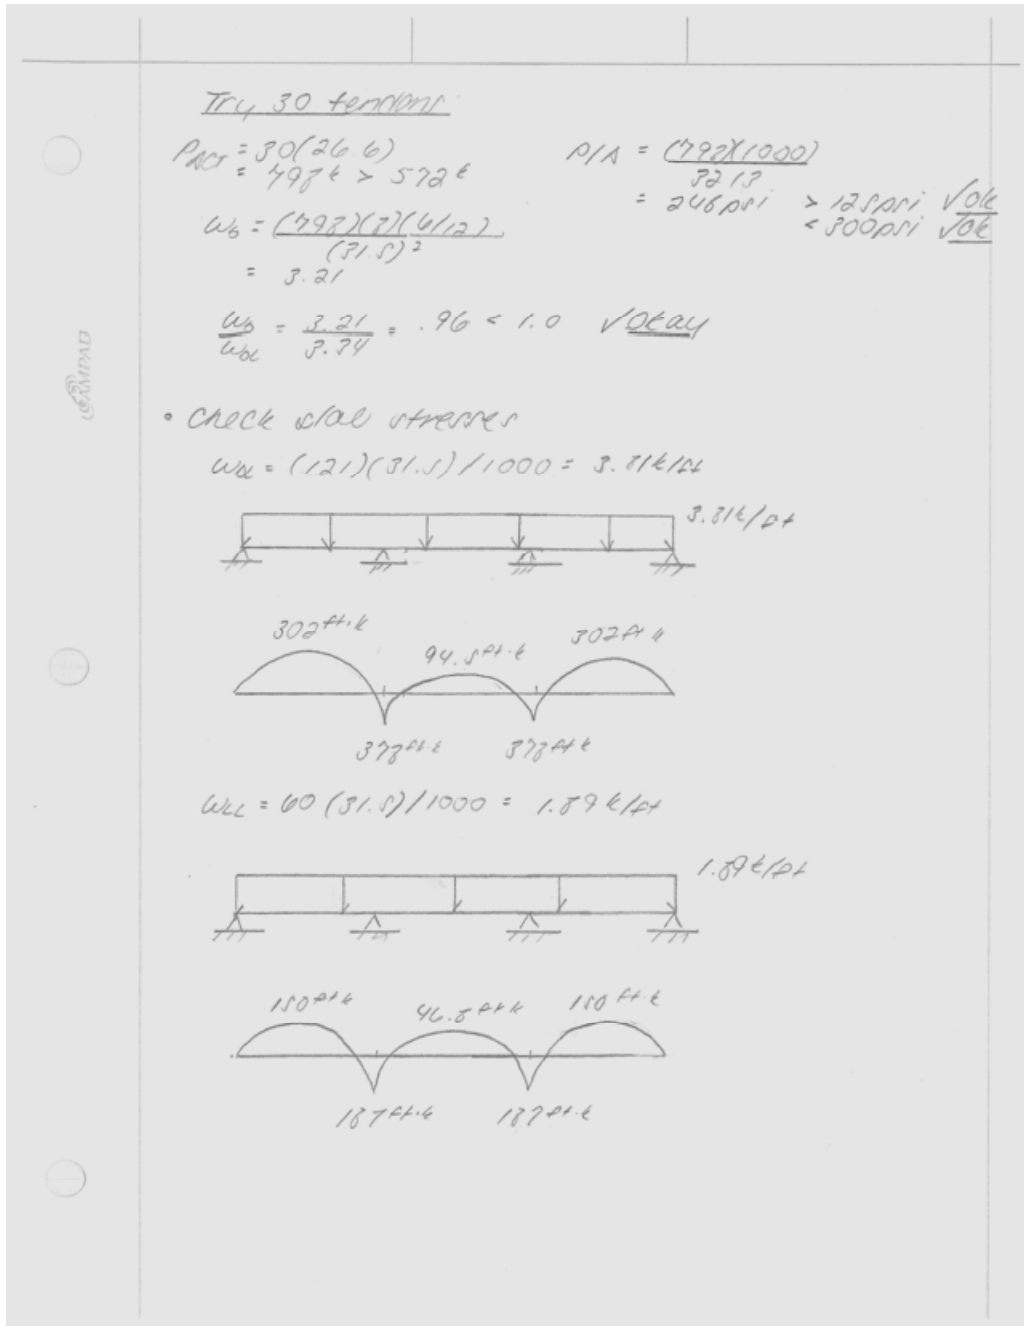 Try 30 tendons
PACT = 30(26.6)
= 798k > 572k
P/A = (798)(1000)
3213
= 248psi > 125psi √ok
< 300psi √ok
wb = (798)(8)(6/12)
(31.5)²
= 3.21
wb = 3.21 = .96 < 1.0 √okay
wDL 3.34
• Check slab stresses
wDL = (121)(31.5)/1000 = 3.81k/ft
3.81k/ft
302ft·k 94.5ft·k 302ft·k
378ft·k 378ft·k
wLL = 60(31.5)/1000 = 1.89k/ft
1.89k/ft
150ft·k 46.8ft·k 150ft·k
187ft·k 187ft·k
CAMPAD